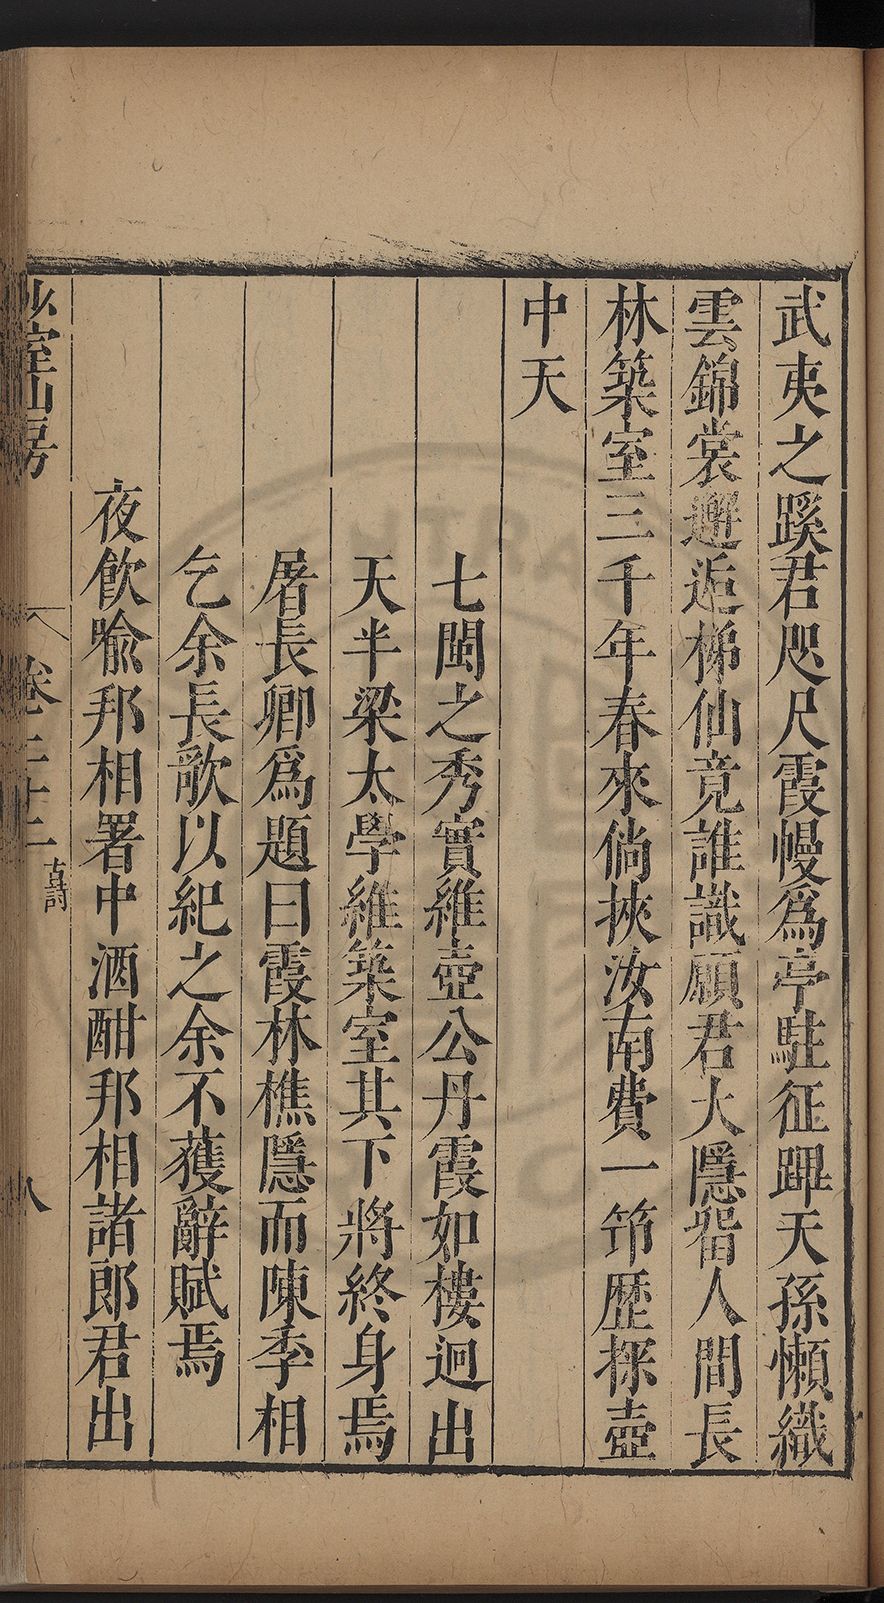 武夷之蹊君咫尺霞幔爲亭駐征蹕天孫懶織
雲錦裳邂逅梯仙竟誰識願君大隱畱人間長
林築室三千年春來倘挾汝南費一笻歷探壺
中天
七閩之秀實維壺公丹霞如樓迥出
天半梁太學維築室其下將終身焉
屠長卿爲題曰霞林樵隱而陳季相
乞余長歌以紀之余不獲辭賦焉
夜飲喻邦相署中酒酣邦相諸郎君出
少室山房
卷二十二
古詩
八